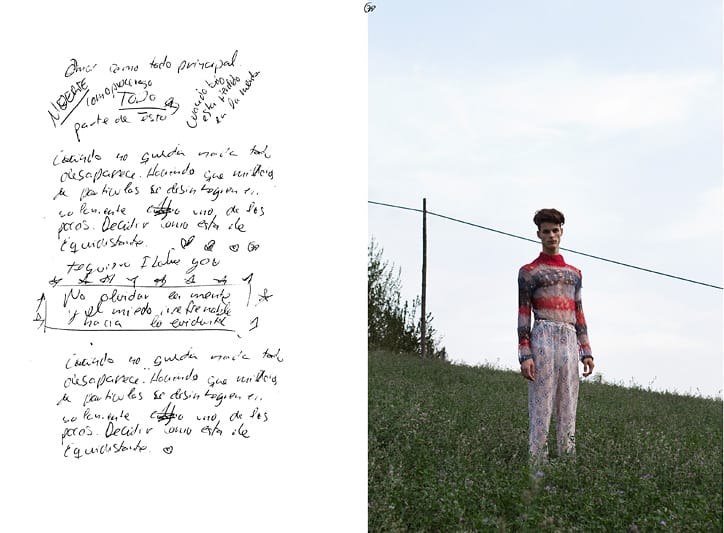 como todo principal.
MUERTE
como proceso
TODO
parte de esto
Cuando todo
esta
en la mente
Cuando no queda nada todo
desaparece. Haciendo que millones
de particulas se desintegren
solamente uno de los
pocos. Decidir como esta de
Equidistante. ♡ ♡ ♡
I love you
No olvidar la mente
y el miedo irrefrenable
hacia lo evidente
Cuando no queda nada todo
desaparece. Haciendo que millones
de particulas se desintegren
solamente uno de los
pocos. Decidir como esta de
Equidistante. ♡